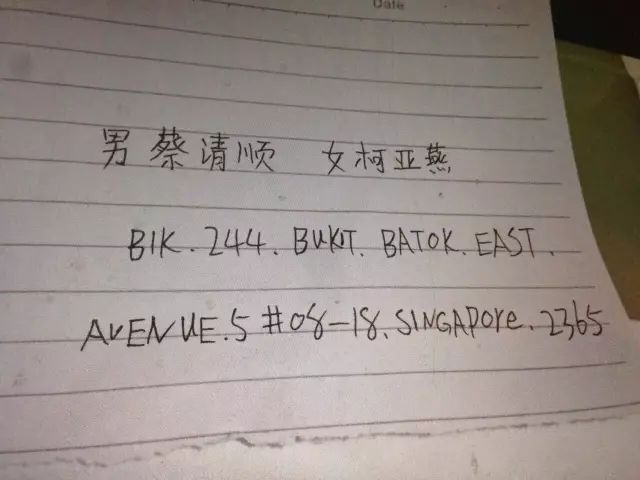 Date
男 蔡清顺 女柯亚燕
BIK. 244. BUKIT. BATOK. EAST.
AVENUE. 5 #08-18. SINGAPORE. 2365